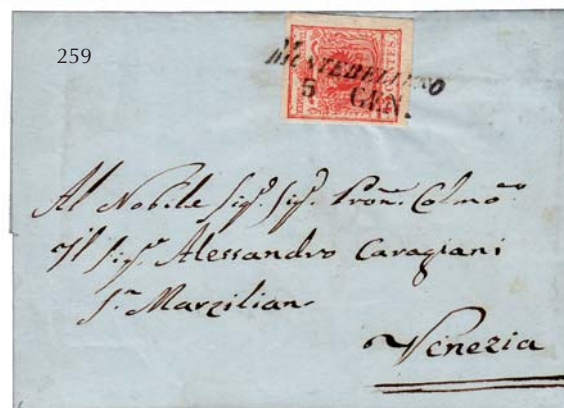 259
MONTEBELLUNO
5 GEN.
Al Nobile Sigr. Sigr. Pron. Colmo
Il Sigr. Alessandro Caragiani
Sn Marzilian
Venezia